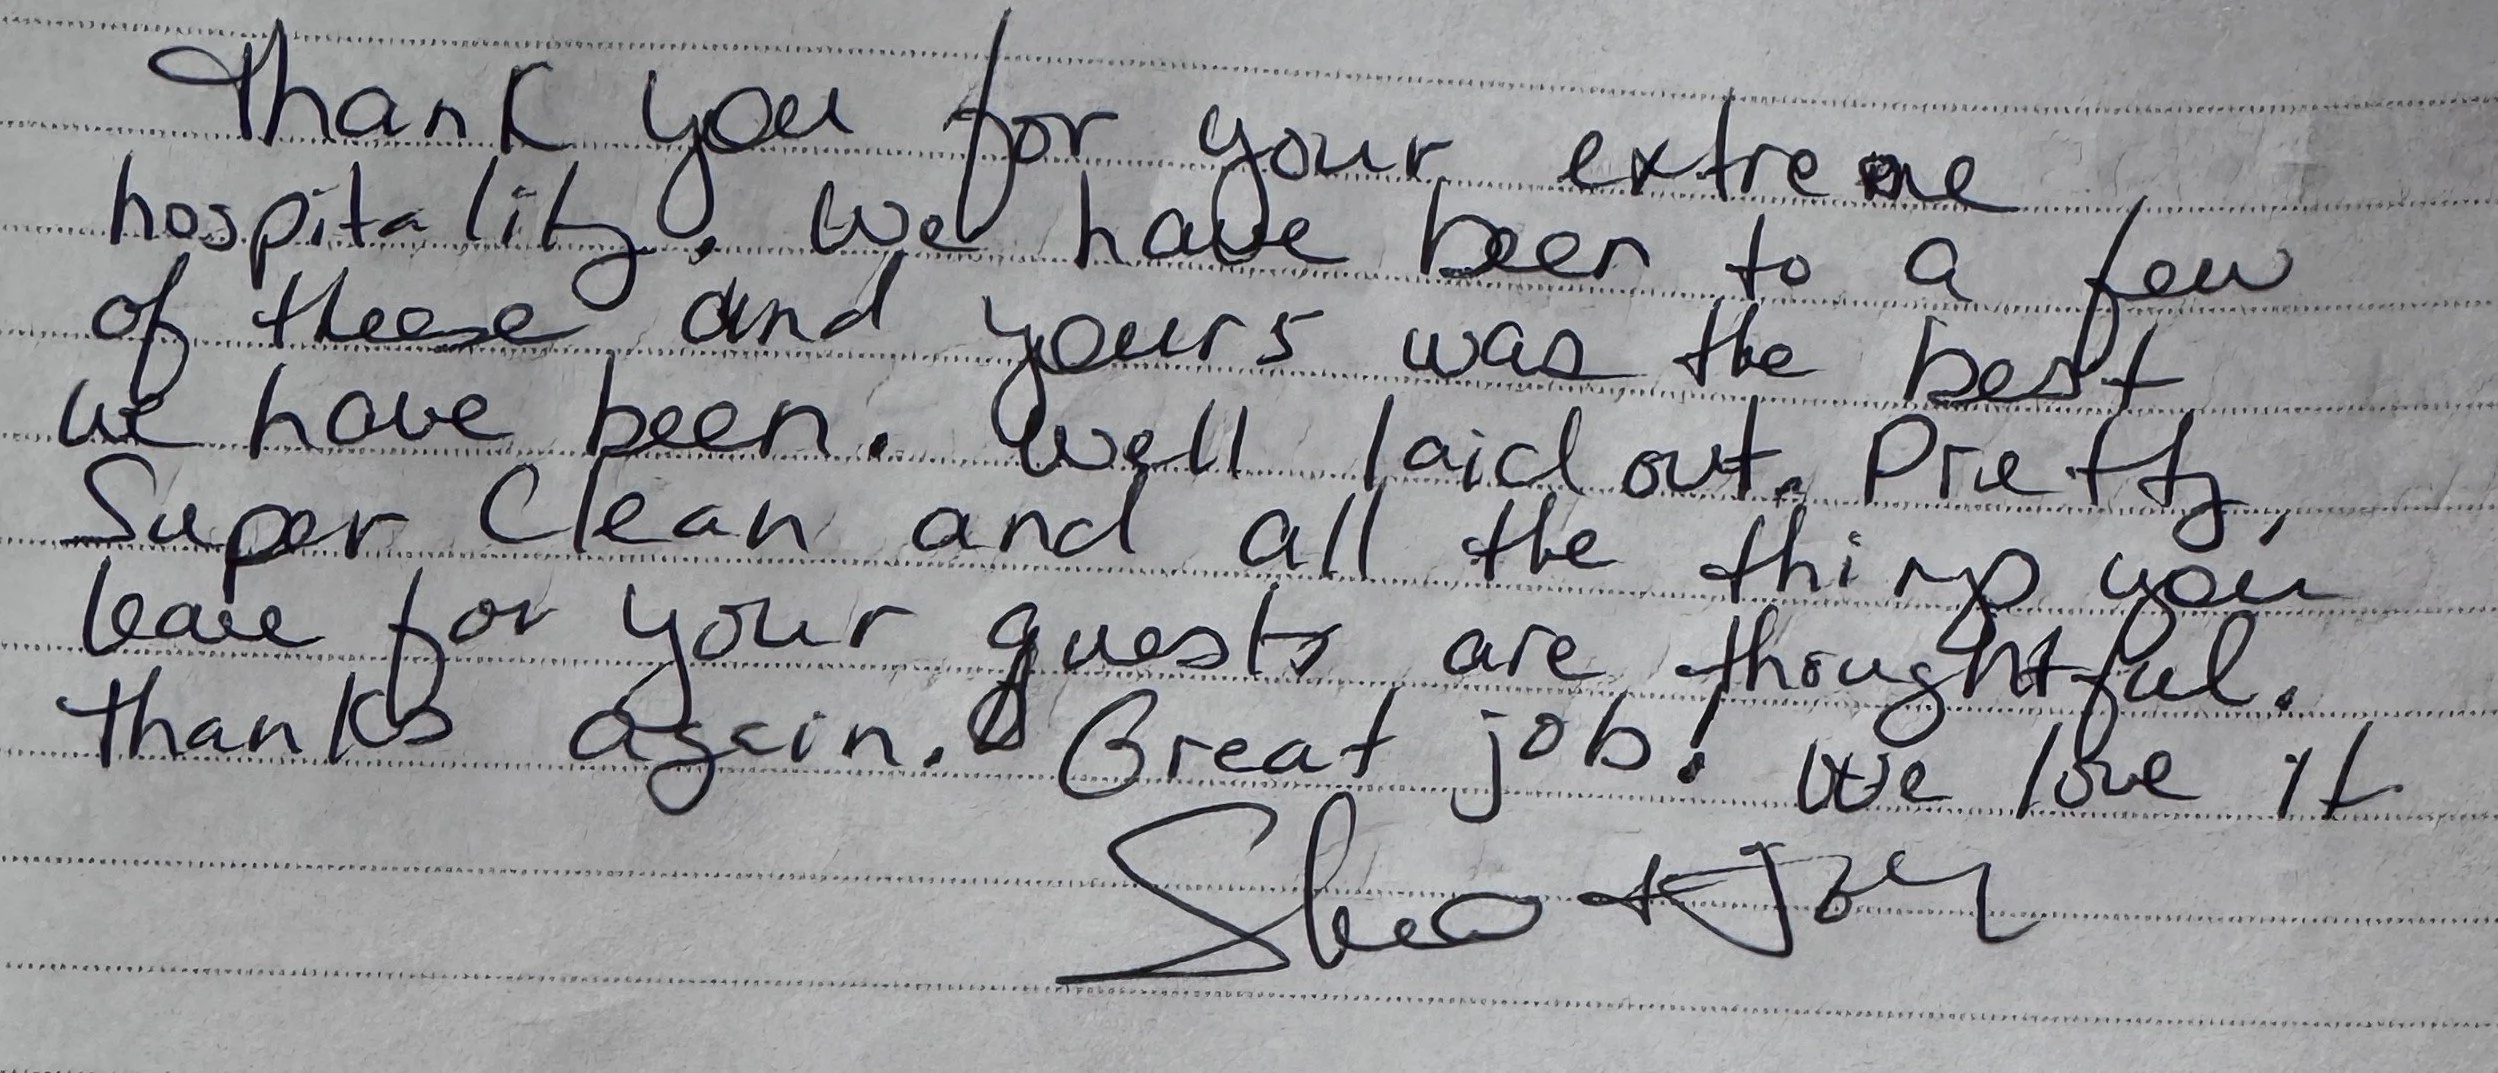 Thank you for your extreme
hospitality. We have been to a few
of theese and yours was the best
we have been. Well laid out. Pretty,
Super Clean and all the things you
leave for your guests are thoughtful.
thanks again. Great job! We love it